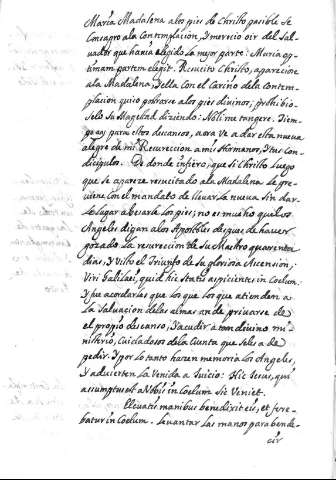 Maria Madalena a los pies de Christo pasible se
consagro a la Contemplacion, y merecio oir del Sal-
uador que hauia elegido la mejor parte: Maria op-
timam partem elegit. Resucito Christo, apareciose
a la Madalena, y ella con el Cariño de la Contem-
placion quiso postrarse a los pies diuinos; prohibio-
selo su Magestad diziendo: Noli me tangere. Tiem-
po ay para estos descansos, aora ve a dar esta nueua
alegre de mi Resurreccion a mis Hermanos, y tus Con-
dicipulos. De donde infiero, que si Christo luego
que se aparece resucitado a la Madalena le pre-
uiene con el mandato de lleuar la nueua sin dar
lo lugar a besarle los pies; no es mucho que los
Angeles digan a los Apostoles despues de hauer
gozado la resurreccion de su Maestro quarenta
dias, y visto el Triunfo de su gloriosa Ascension;
Viri Galilaei, quid hic statis aspicientes in Coelum.
Y fue acordarles que los que atienden a
la saluacion de las almas an de priuarse de
el propio descanso, y acudir a tan diuino mi-
nisterio, Cuidadosos de la Cuenta que se les a de
pedir. Y por lo tanto hacen memoria los Angeles,
y aduierten la Venida a Juicio: Hic Jesus, qui
assumptus est a Vobis in Coelum sic Veniet.
Eleuatis manibus benedixit eis, et fere-
batur in Coelum. Leuantar las manos para bende-
cir